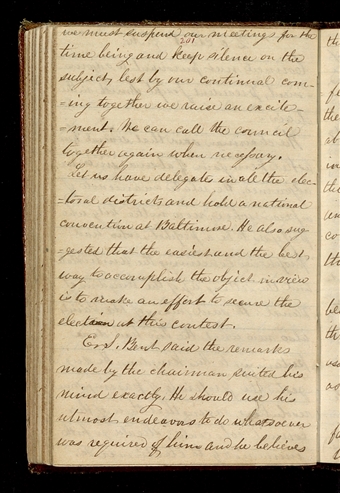 we must suspend our meetings for the
201
time being and keep silence on the
subject, lest by our continual com-
=ing together we raise an excite-
=ment. We can call the council
together again when necessary.
Let us have delegates in all the elec-
=toral districts and hold a national
convention at Baltimore. He also sug-
=gested that the easiest and the best
way to accomplish the object in view
is to make an effort to secure the
election at this contest.
Er S. Bent said the remarks
made by the chairman, suited his
mind exactly. He should use his
utmost endeavors to do whatsoever
was required of him and he believes